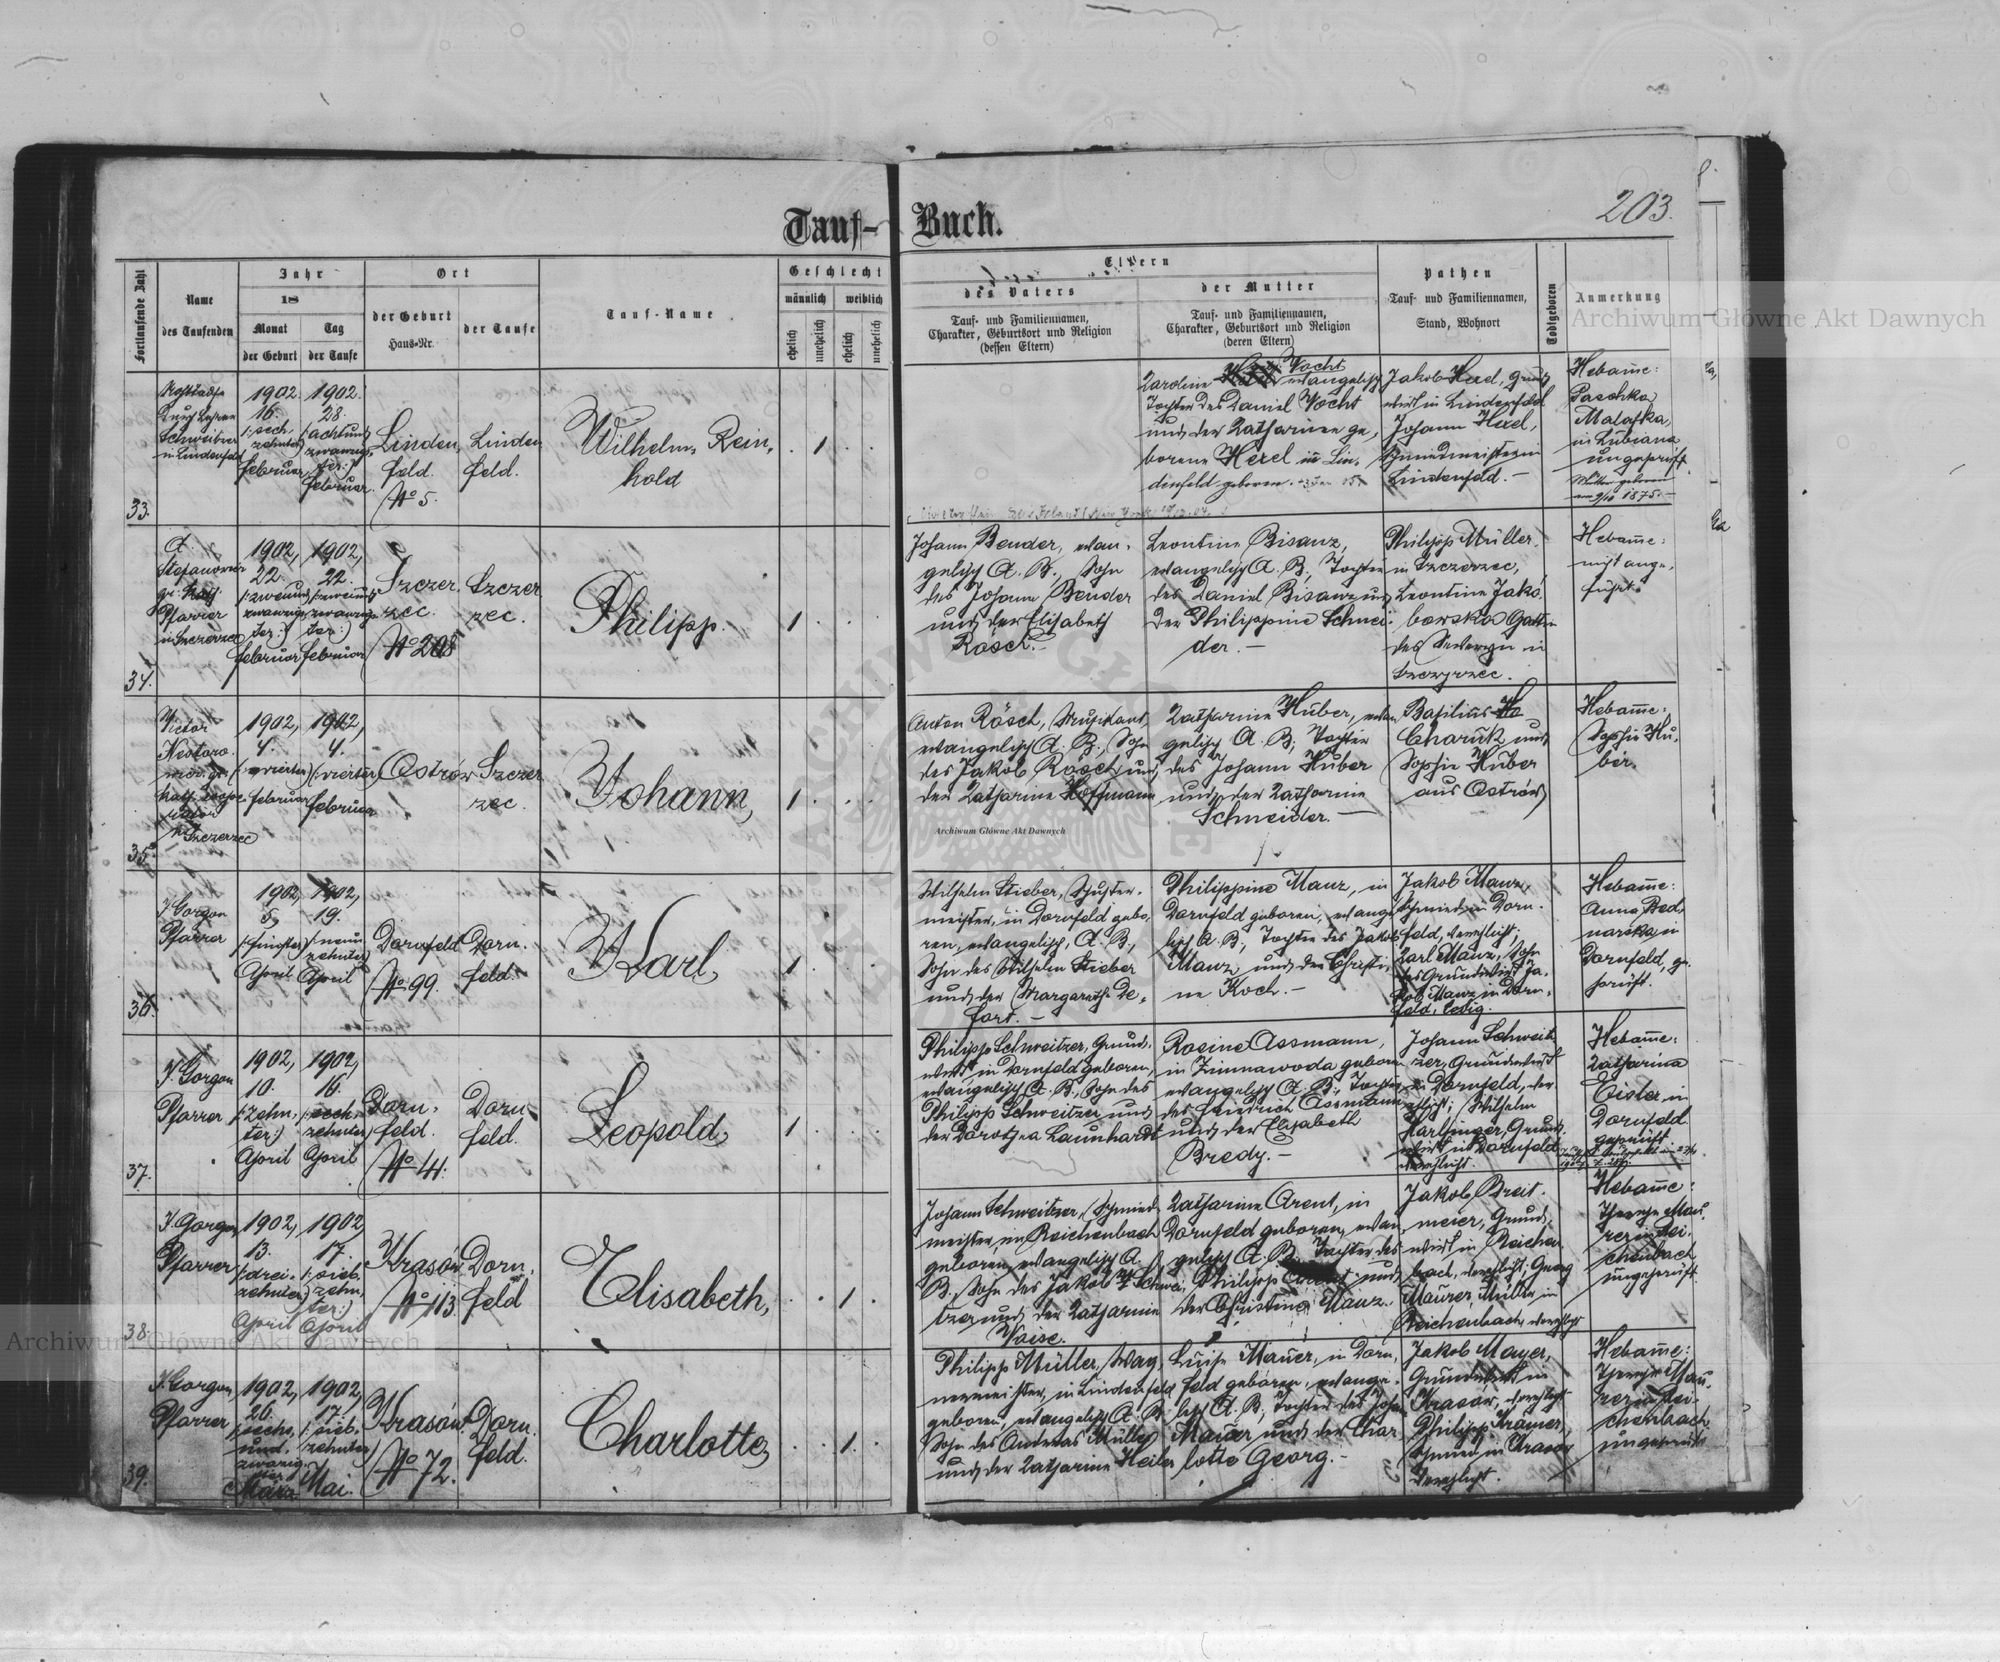 203.
Tauf-Buch.
Fortlaufende Zahl
Name
des Taufenden
Jahr
18
Monat
der Geburt
Tag
der Taufe
Ort
der Geburt
Haus-Nr.
der Taufe
Tauf-Name
Geschlecht
männlich
weiblich
ehelich
unehelich
ehelich
unehelich
Eltern
des Vaters
Tauf- und Familiennamen,
Charakter, Geburtsort und Religion
(dessen Eltern)
der Mutter
Tauf- und Familiennamen,
Charakter, Geburtsort und Religion
(deren Eltern)
Pathen
Tauf- und Familiennamen,
Stand, Wohnort
Todtgeboren
Anmerkung
33.
Schreiber
in Lindenfeld
1902.
16.
(:sech.
zehnter:)
Februar
1902.
28.
(:achtund
zwanzig.
ster:)
Februar.
Linden,
feld.
No 5.
Linden
feld.
Wilhelm, Rein,
hold
1
Karoline Vocht evangelisch
Tochter des Daniel Vocht
und der Katharina ge,
borene Hexel in Lin,
denfeld geboren.
Jakob Hexel, Grund
wirt in Lindenfeld
Johann Hexel,
Schmiedmeister in
Lindenfeld. –
Hebam̄e:
Paschka
Malafka,
in Lubiana
ungeprüft.
Mutter geboren
1875. –
34.
Stefanowicz
gr. kath.
Pfarrer
in Szczerzec
1902,
22.
(:zweiund
zwanzig,
ster:)
Februar
1902,
22.
(:zweiund
zwanzig,
ster:)
Februar
Szczer.
zec.
No 208
Szczer
zec.
Philipp.
1
Johann Bender, evan.
gelisch A. B., Sohn
des Johann Bender
und der Elisabeth
Rösch. –
Leontine Bisanz,
evangelisch A. B., Tochter
des Daniel Bisanz und
der Philippine Schnei.
der. –
Philipp Müller.
in Szczerzec,
Leontine Jakó.
bowska Gattin
des Seweryn in
Szczerzec.
Hebam̄e:
nicht ange.
führt.
35.
Victor
Szczerzec
1902,
4.
(:vierter:)
Februar
1902,
4.
(:vierter:)
Februar
Ostrów
Szczer
zec.
Johann,
1
Anton Rösch, Musikant,
evangelisch A. B., Sohn
des Jakob Rösch und
der Katharine Hoffmann
Katharine Huber, evan
gelisch A. B., Tochter
des Johann Huber
und der Katharine
Schneider. –
Basilius Ho
Charuk und
Sophie Huber
aus Ostrów
Hebam̄e:
Sophie Hu.
ber.
36.
J. Gorgon
Pfarrer
1902,
5
(:fünfter:)
April
1902,
19.
(:neun
zehnter:)
April
Dornfeld
No 99.
Dorn.
feld.
Karl,
1
Wilhelm Stieber, Schuster.
meister, in Dornfeld gebo,
ren, evangelisch, A. B.,
Sohn des Wilhelm Stieber
und der Margareth De,
fort. –
Philippine Manz, in
Dornfeld geboren, evange
lisch A. B., Tochter des Jakob
Manz und der Christi,
ne Koch. –
Jakob Manz,
Schmied in Dorn.
feld, verehlicht;
Karl Manz, Sohn
des Grundwirt Ja.
kob Manz in Dorn.
feld, ledig.
Hebam̄e:
Anna Bed,
narska in
Dornfeld, ge.
prüft.
37.
J. Gorgon
Pfarrer
1902,
10.
(:zehn,
ter:)
April
1902,
16.
(:sech.
zehnter:)
April
Dorn.
feld.
No 4.
Dorn
feld.
Leopold,
1
Philipp Schweitzer, Grund.
wirt in Dornfeld geboren,
evangelisch A. B., Sohn des
Philipp Schweitzer und
der Dorothea Launhardt
Rosine Assmann,
in Zimnawoda geboren
evangelisch A. B., Tochter
des Friedrich Assmann
und der Elisabeth
Bredy. –
Johann Schweit
zer, Grundwirt
in Dornfeld, ver
ehlicht; Wilhelm
Harlfinger, Grund.
wirt in Dornfeld
verehlicht.
Hebam̄e:
Katharina
Eister in
Dornfeld
geprüft.
38.
J. Gorgon
Pfarrer
1902,
13.
(:drei.
zehnter:)
April
1902,
17.
(:sieb.
zehn,
ter:)
April
Krasów
No 113.
Dorn.
feld
Elisabeth,
1
Johann Schweitzer, Schmied
meister, in Reichenbach
geboren, evangelisch A.
B., Sohn des Jakob Schwei
tzer und der Katharine
Weise.
Katharine Arent, in
Dornfeld geboren, evan
gelisch A. B., Tochter des
Philipp Arent und
der Christine Manz.
Jakob Breit.
meier, Grund,
wirt in Reichen
bach, verehlicht; Georg
Maurer, Müller in
Reichenbach, verehlicht
Hebam̄e:
Therese Mau.
rer in Rei.
chenbach
ungeprüft.
39.
J. Gorgon,
Pfarrer
1902,
26.
(:sechs,
und.
zwanzig.
ster
März
1902,
17.
(:sieb.
zehnter:)
Mai.
Krasów
No 72.
Dorn.
feld.
Charlotte,
1.
Philipp Müller, Wag,
nermeister, in Lindenfeld
geboren, evangelisch A. B.
Sohn des Andreas Müller
und der Katharine Heiler
Luise Mauer, in Dorn,
feld geboren, evange.
lisch A. B., Tochter des Johan
Maier und der Char,
lotte Georg. –
Jakob Mayer,
Grundwirt in
Krasów, verehlicht
Philipp Kramer,
Schmied in Krasów
verehlicht.
Hebam̄e:
Therese Mau.
rer in Rei.
chenbach
ungeprüft
Archiwum Główne Akt Dawnych
Archiwum Główne Akt Dawnych
Archiwum Główne Akt Dawnych